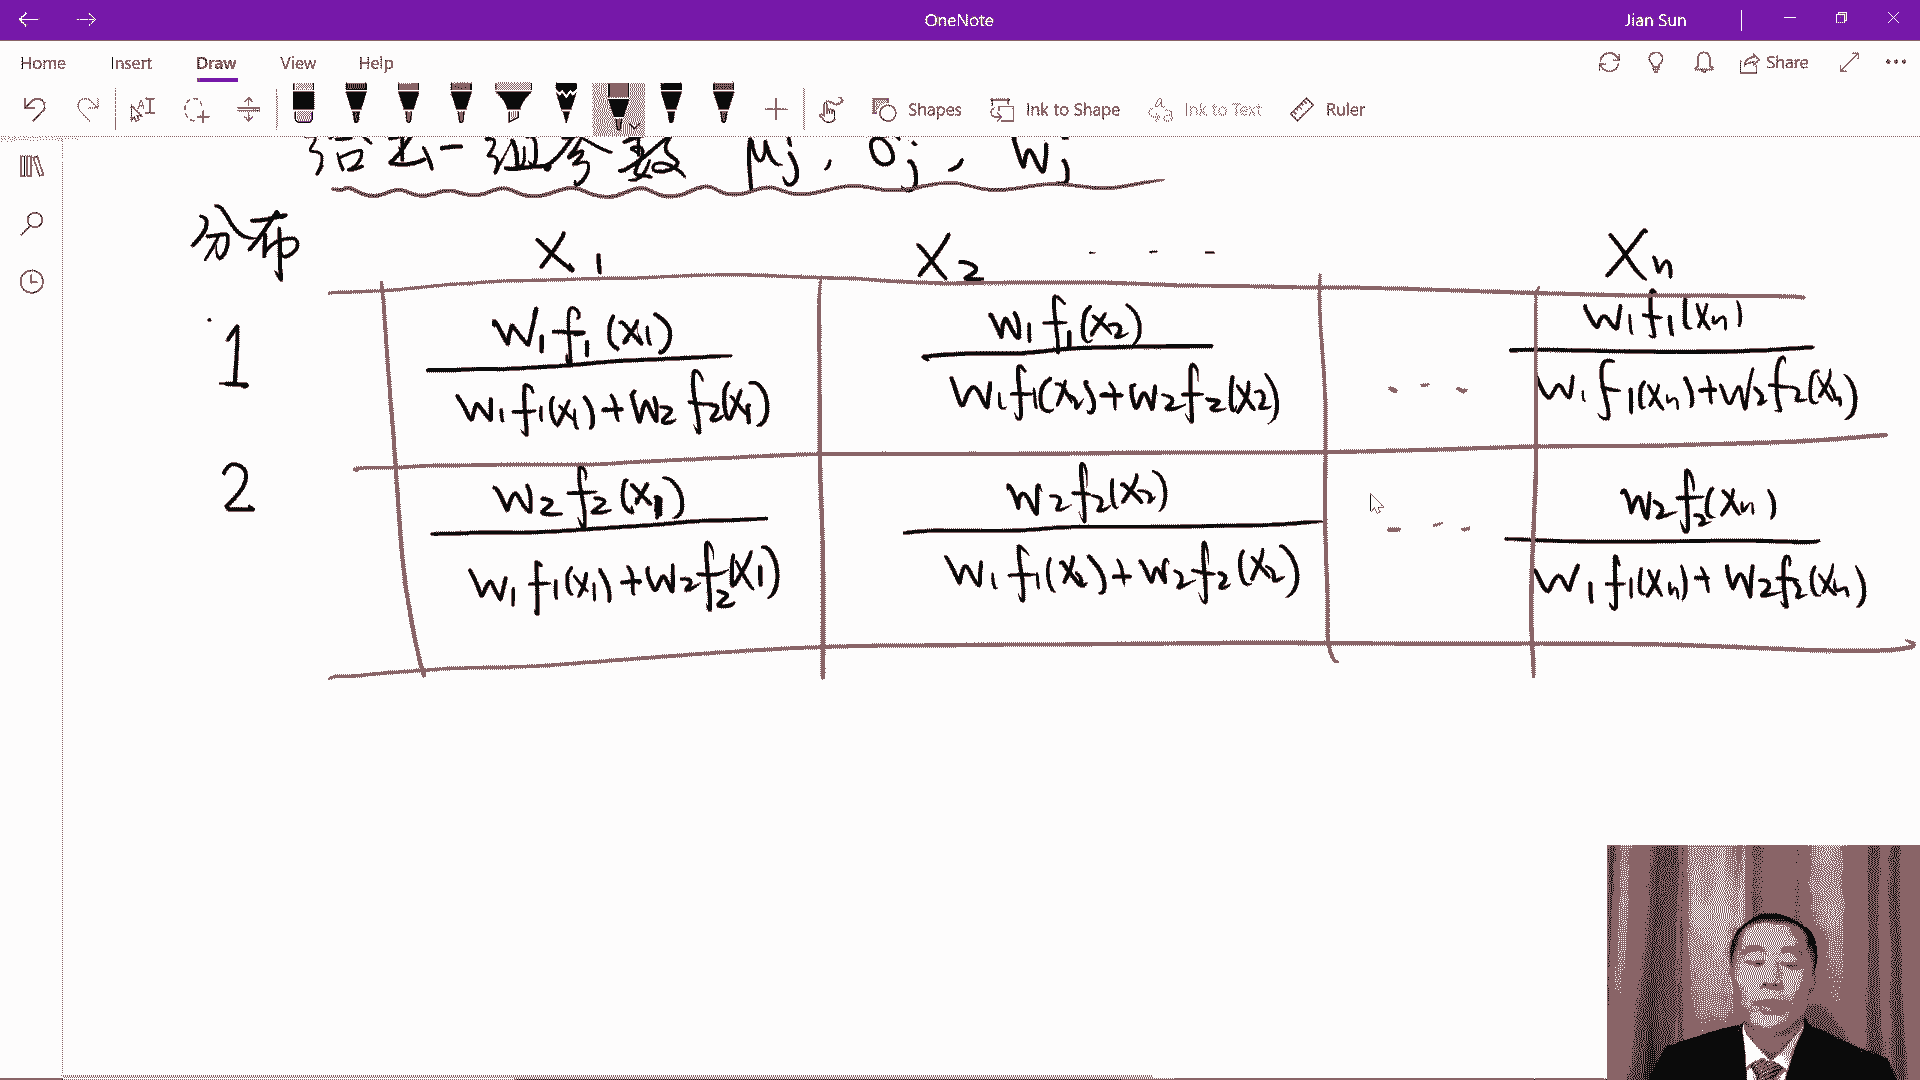 OneNote
Jian Sun
Home Insert Draw View Help
Share
Shapes Ink to Shape Ink to Text Ruler
给出一组参数 μj , σj , Wj
分布 X1 X2 - - - Xn
1
W1f1(X1) / W1f1(X1)+W2f2(X1)
W1f1(X2) / W1f1(X2)+W2f2(X2)
- - -
W1f1(Xn) / W1f1(Xn)+W2f2(Xn)
2
W2f2(X1) / W1f1(X1)+W2f2(X1)
W2f2(X2) / W1f1(X2)+W2f2(X2)
- - -
W2f2(Xn) / W1f1(Xn)+W2f2(Xn)